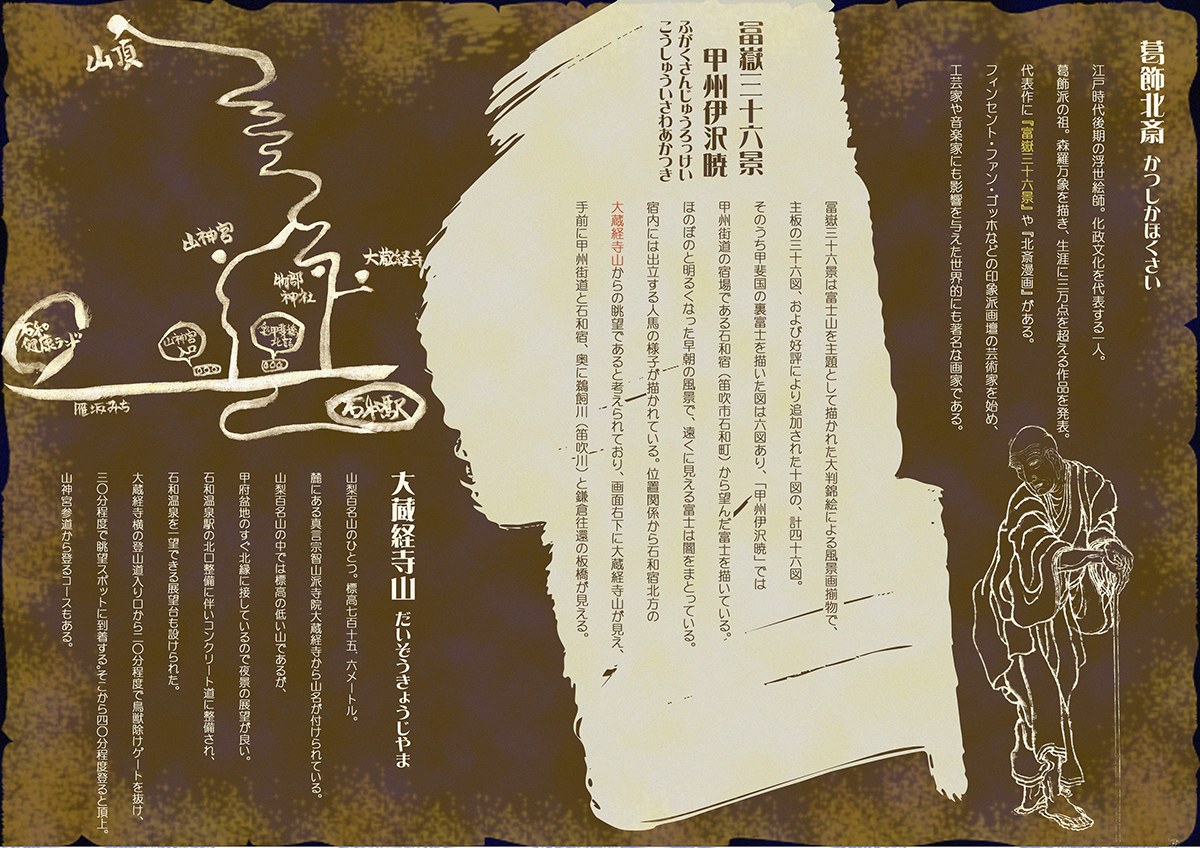 葛飾北斎 かつしかほくさい
江戸時代後期の浮世絵師。化政文化を代表する一人。
葛飾派の祖。森羅万象を描き、生涯に三万点を超える作品を発表。
代表作に『富嶽三十六景』や『北斎漫画』がある。
フィンセント・ファン・ゴッホなどの印象派画壇の芸術家を始め、
工芸家や音楽家にも影響を与えた世界的にも著名な画家である。
冨嶽三十六景
甲州伊沢暁
ふがくさんじゅうろっけい
こうしゅういさわあかつき
冨嶽三十六景は富士山を主題として描かれた大判錦絵による風景画揃物で、
主板の三十六図、および好評により追加された十図の、計四十六図。
そのうち甲斐国の裏富士を描いた図は六図あり、「甲州伊沢暁」では
甲州街道の宿場である石和宿（笛吹市石和町）から望んだ富士を描いている。
ほのぼのと明るくなった早朝の風景で、遠くに見える富士は闇をまとっている。
宿内には出立する人馬の様子が描かれている。位置関係から石和宿北方の
大蔵経寺山からの眺望であると考えられており、画面右下に大蔵経寺山が見え、
手前に甲州街道と石和宿、奥に鵜飼川（笛吹川）と鎌倉往還の板橋が見える。
山頂
山神宮
大蔵経寺
物部
神社
石和
健康ランド
山神宮
入口
北
雁坂みち
石和駅
大蔵経寺山 だいぞうきょうじやま
山梨百名山のひとつ。標高七百十五．六メートル。
麓にある真言宗智山派寺院大蔵経寺から山名が付けられている。
山梨百名山の中では標高の低い山であるが、
甲府盆地のすぐ北縁に接しているので夜景の展望が良い。
石和温泉駅の北口整備に伴いコンクリート道に整備され、
石和温泉を一望できる展望台も設けられた。
大蔵経寺横の登山道入り口から二〇分程度で鳥獣除けゲートを抜け、
三〇分程度で眺望スポットに到着する。そこから四〇分程度登ると頂上。
山神宮参道から登るコースもある。